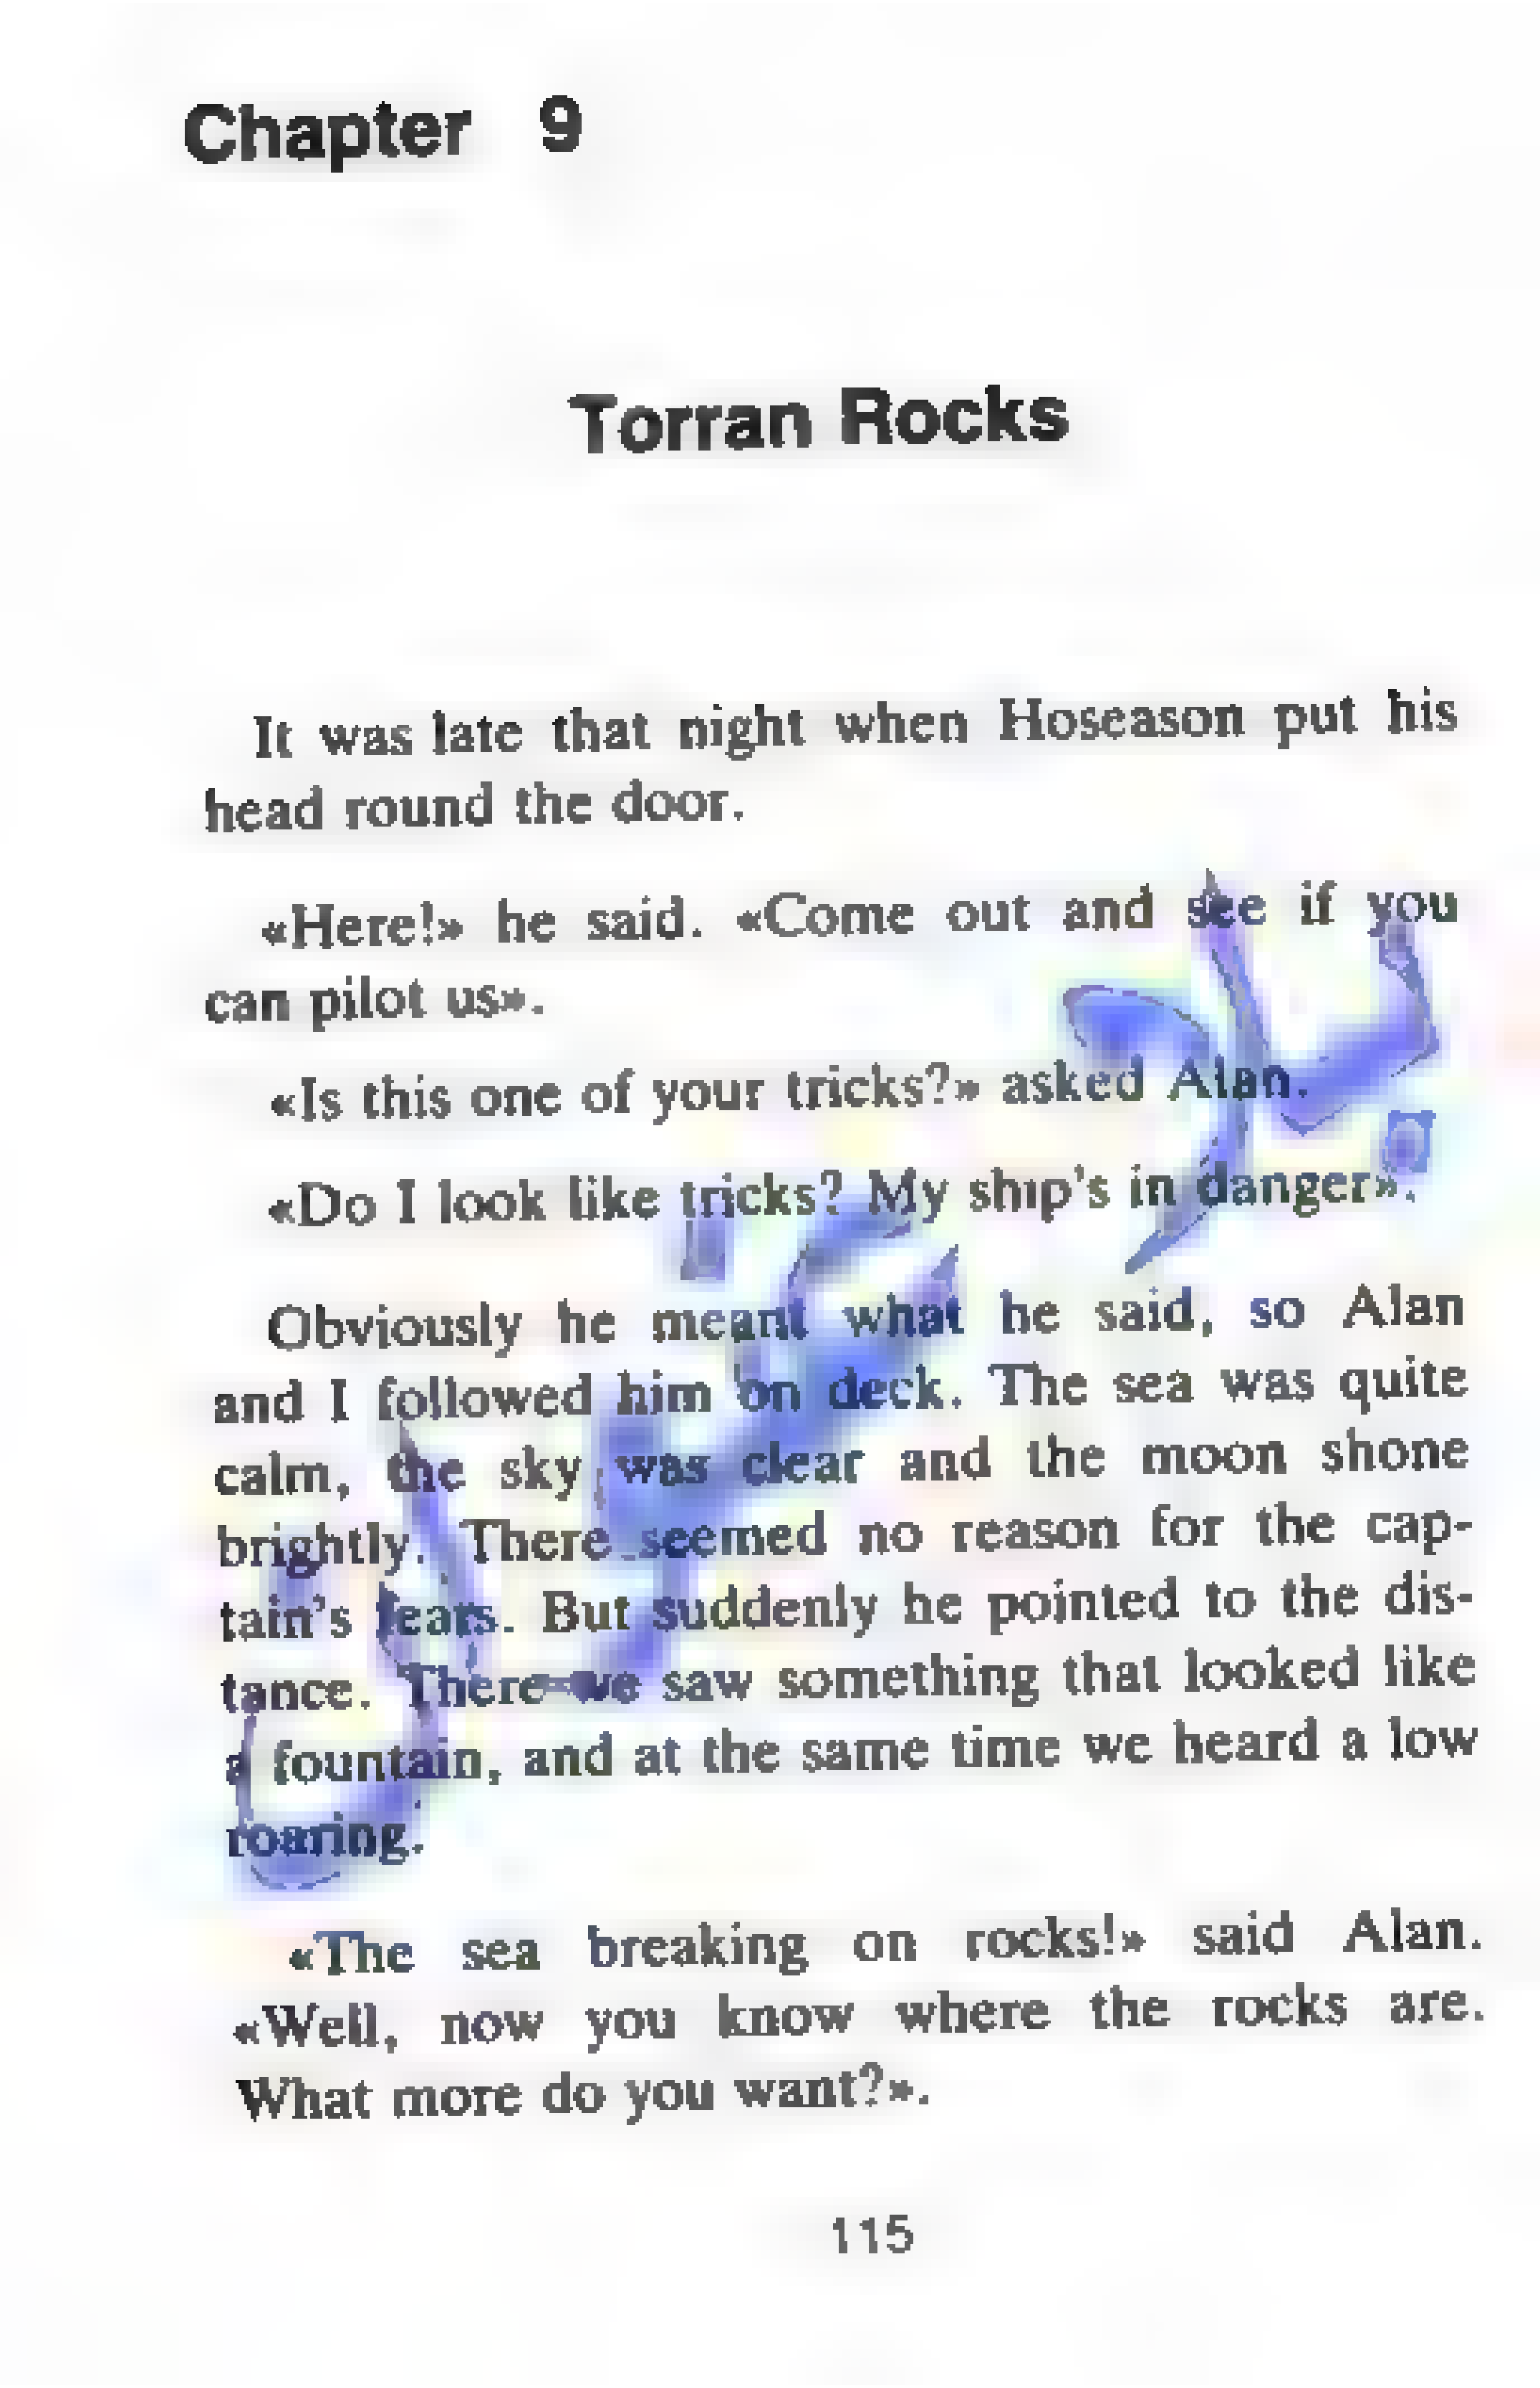 Chapter 9
Torran Rocks
It was late that night when Hoseason put his
head round the door.
«Here!» he said. «Come out and see if you
can pilot us».
«Is this one of your tricks?» asked Alan.
«Do I look like tricks? My ship's in danger».
Obviously he meant what he said, so Alan
and I followed him on deck. The sea was quite
calm, the sky was clear and the moon shone
brightly. There seemed no reason for the cap-
tain's fears. But suddenly he pointed to the dis-
tance. There we saw something that looked like
a fountain, and at the same time we heard a low
roaring.
«The sea breaking on rocks!» said Alan.
«Well, now you know where the rocks are.
What more do you want?».
115